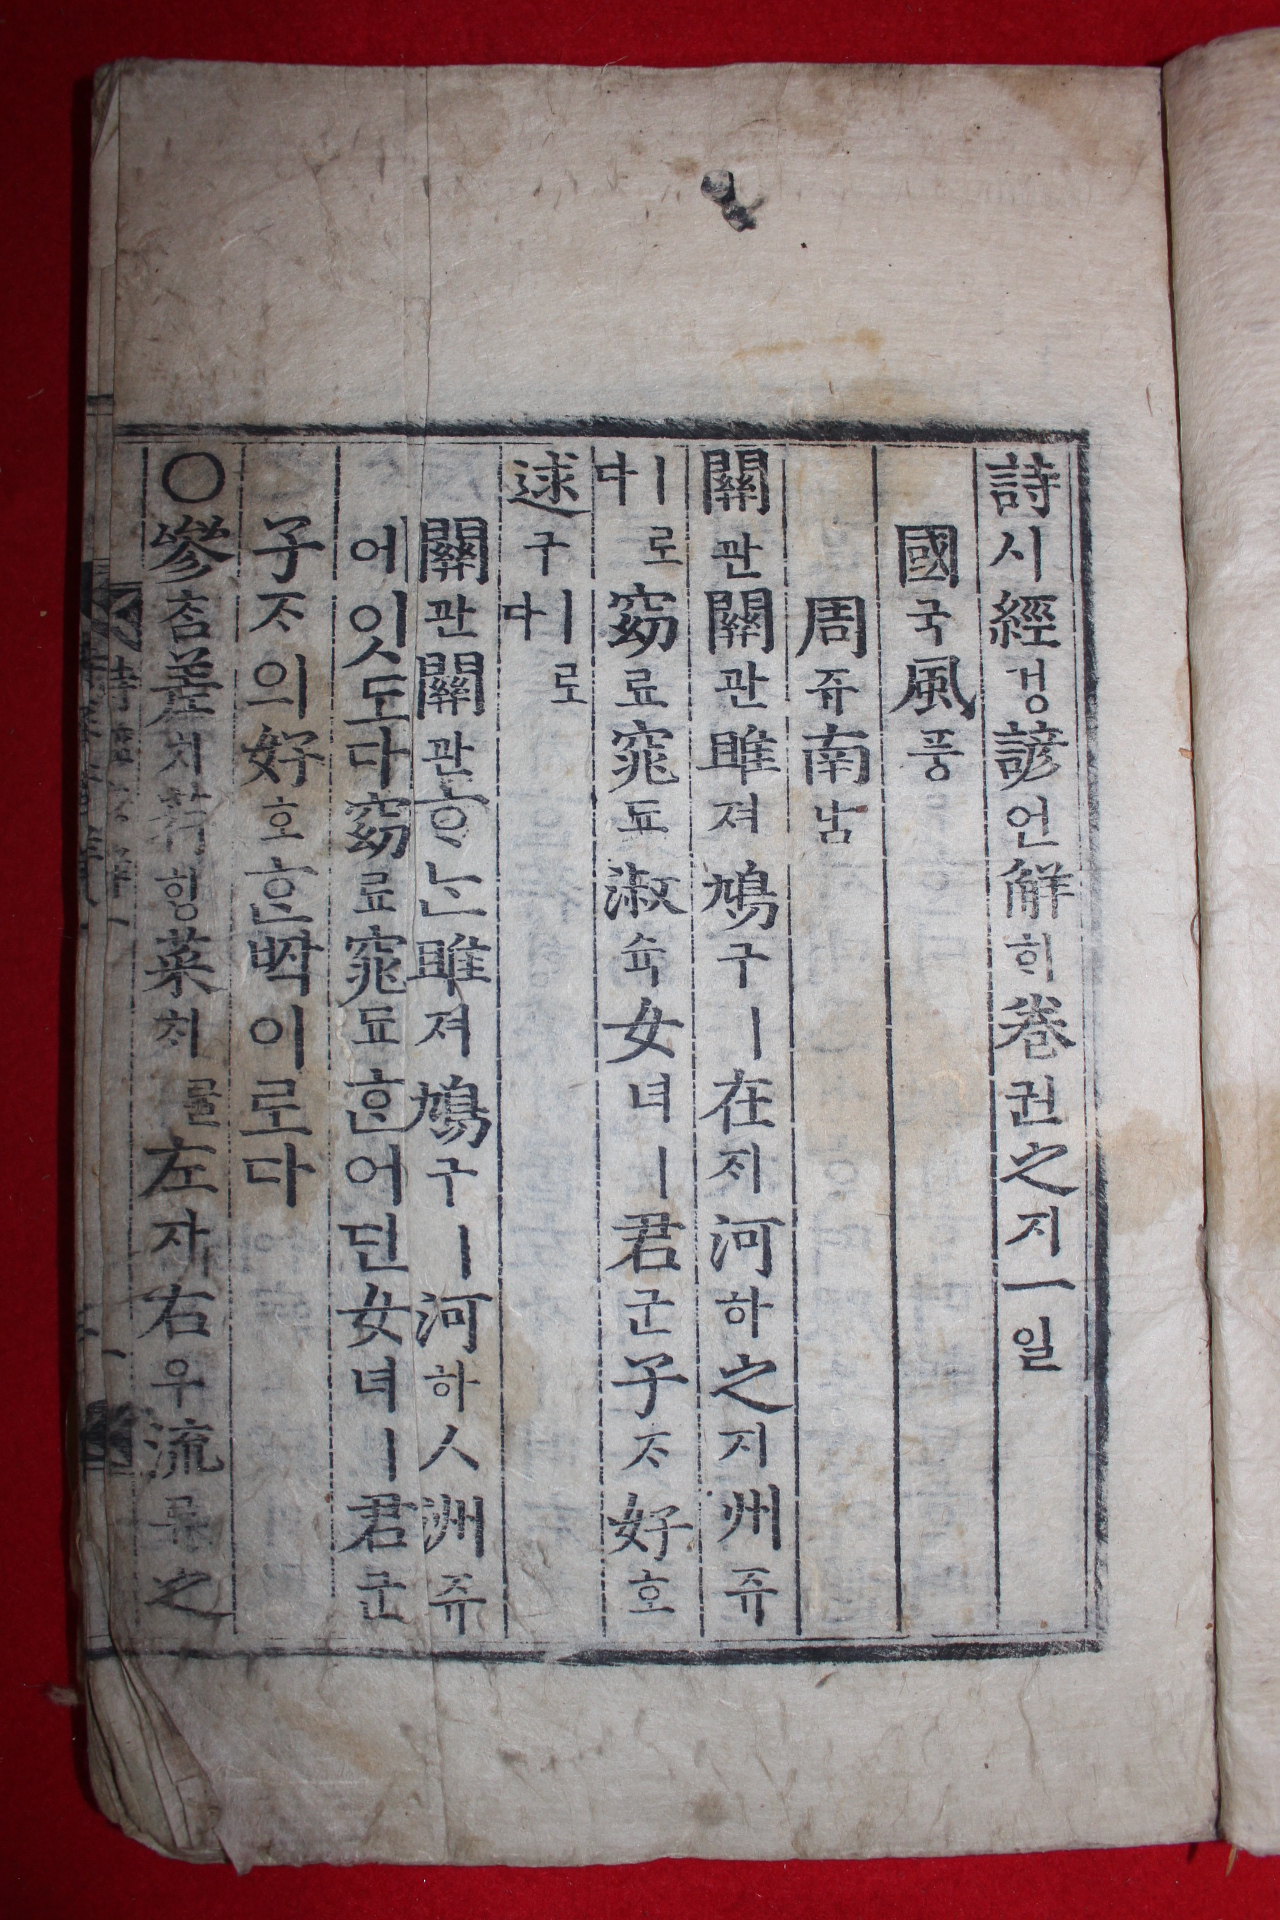 詩시經경諺언解ᄒᆡ卷권之지一일
國국風풍
周쥬南남
關관關관雎져鳩구ㅣ在ᄌᆡ河하之지州쥬
ㅣ로다窈료窕됴淑슉女녀ㅣ君군子ᄌᆞ好호
逑구ㅣ로다
關관關관ᄒᆞᄂᆞᆫ雎져鳩구ㅣ河하人洲쥬
어잇도다窈료窕됴ᄒᆞᆫ어딘女녀ㅣ君군
子ᄌᆞ의好호ᄒᆞᆫᄧᅡᆨ이로다
〇參참差치荇ᄒᆡᆼ菜ᄎᆡ를左자右우流류之